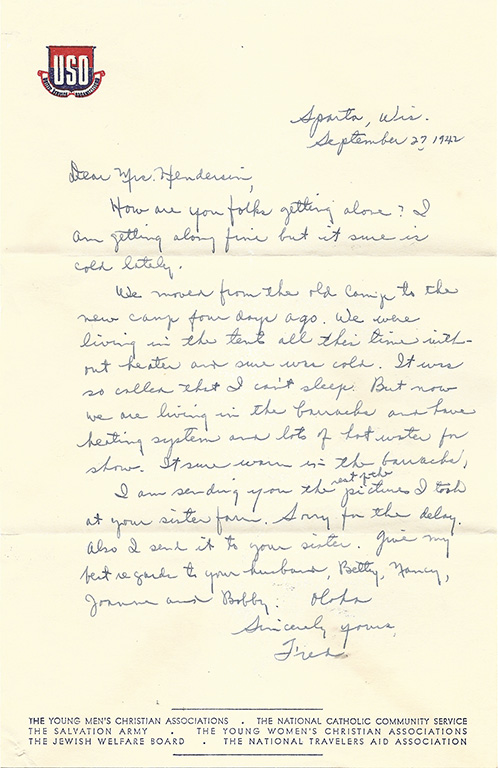 USO
UNITED SERVICE ORGANIZATIONS
Sparta, Wis.
September 27, 1942
Dear Mrs. Henderson,
How are you folks getting alone? I
am getting along fine but it sure is
cold lately.
We moved from the old camp to the
new camp four days ago. We were
living in the tents all this time with-
out heater and sure was cold. It was
so that I can't sleep. But now
we are living in the barracks and have
heating system and lots of hot water for
show. It sure warm in the barracks,
I am sending you the rest of the pictures I took
at your sister farm. Sorry for the delay.
Also I send it to your sister. Give my
best regards to your husband, Betty, Nancy,
Joanne and Bobby. Oloha
Sincerely yours,
Fred.
THE YOUNG MEN'S CHRISTIAN ASSOCIATIONS • THE NATIONAL CATHOLIC COMMUNITY SERVICE
THE SALVATION ARMY • THE YOUNG WOMEN'S CHRISTIAN ASSOCIATIONS
THE JEWISH WELFARE BOARD • THE NATIONAL TRAVELERS AID ASSOCIATION